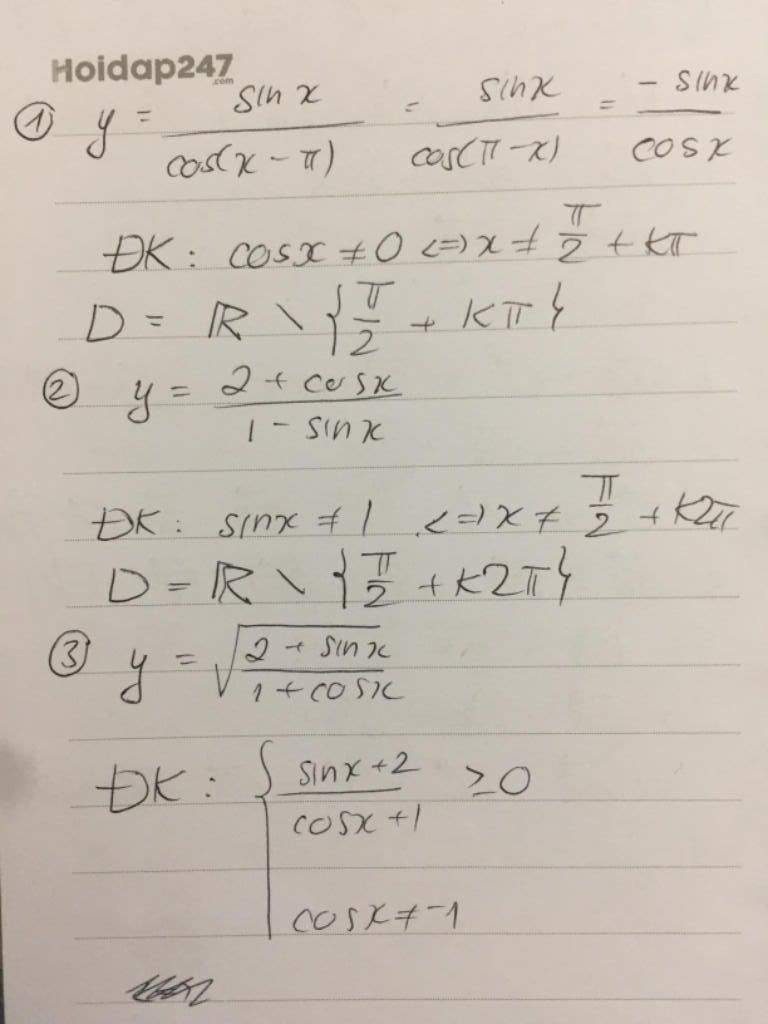 Hoidap247.com
① y = sinx / cos(x - π) = sinx / cos(π - x) = -sinx / cosx
ĐK: cosx ≠ 0 <=> x ≠ π/2 + kπ
D = ℝ \ {π/2 + kπ}
② y = 2 + cosx / 1 - sinx
ĐK: sinx ≠ 1 <=> x ≠ π/2 + k2π
D = ℝ \ {π/2 + k2π}
③ y = √(2 + sinx / 1 + cosx)
ĐK: { sinx + 2 / cosx + 1 ≥ 0
cosx ≠ -1